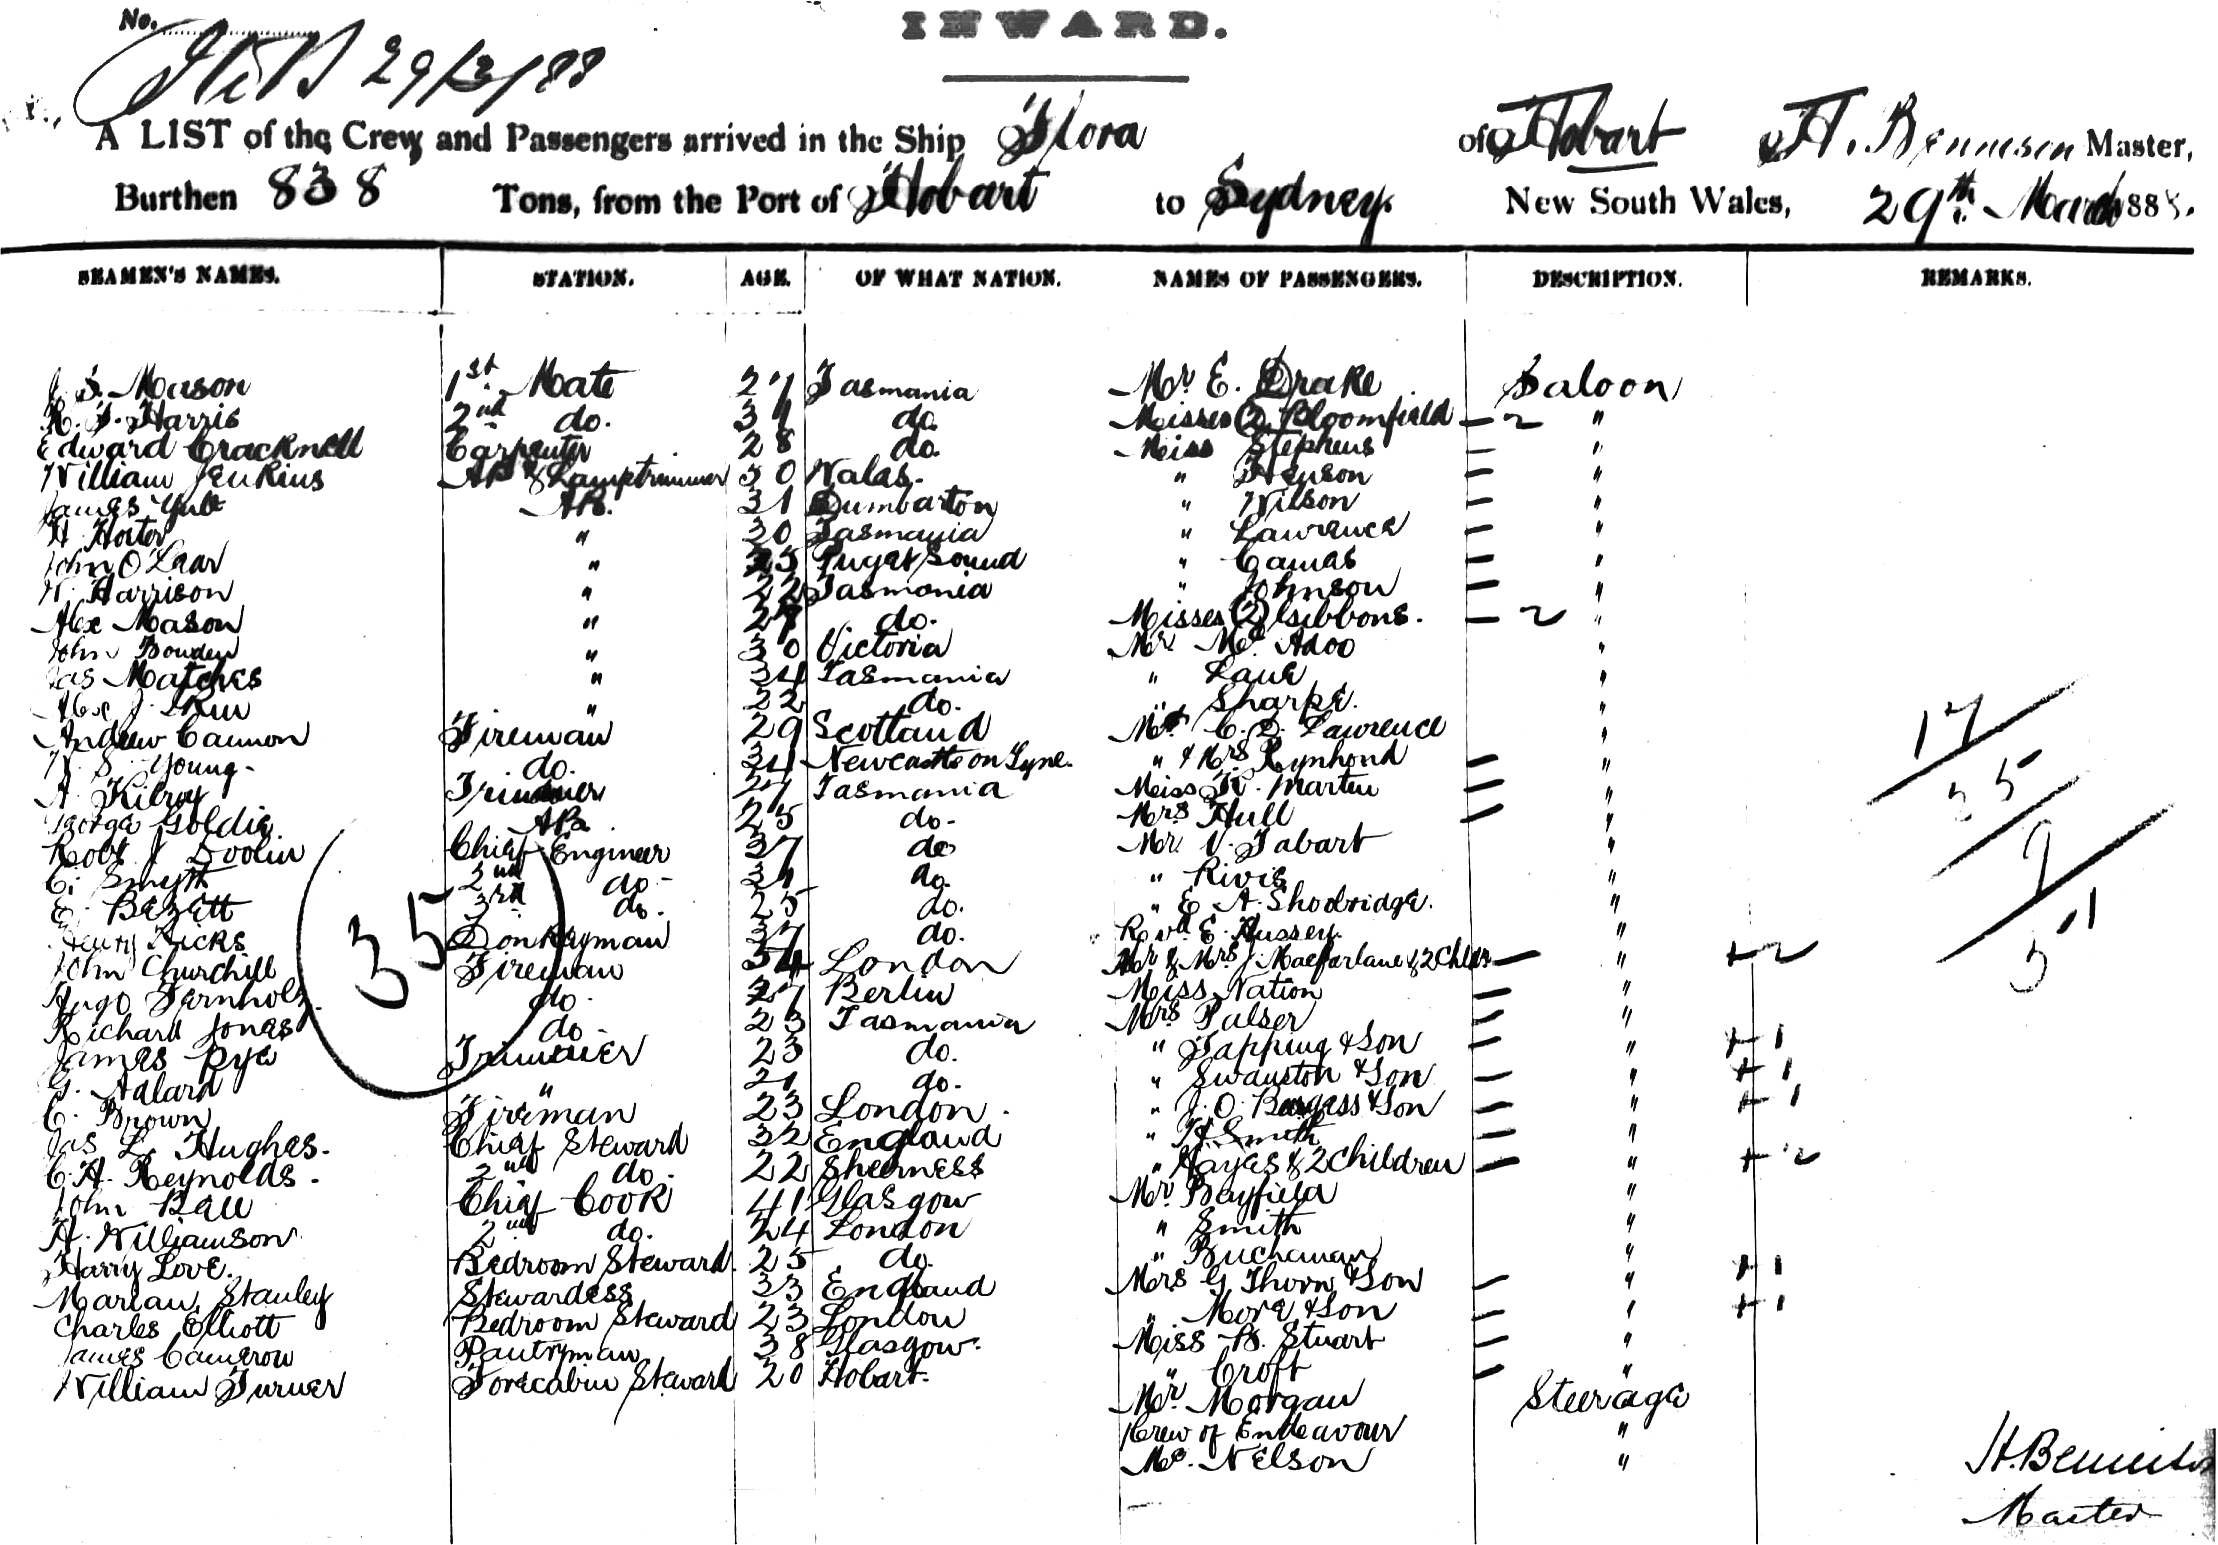 No.
29/3/88
INWARD.
A LIST of the Crew and Passengers arrived in the Ship Flora of Hobart H. Bennison Master,
Burthen 838 Tons, from the Port of Hobart to Sydney New South Wales, 29th March 1888.
SEAMEN'S NAMES. STATION. AGE. OF WHAT NATION. NAMES OF PASSENGERS. DESCRIPTION. REMARKS.
J. S. Mason 1st Mate 27 Tasmania Mr. E. Drake Saloon
R. J. Harris 2nd do. 31 do. Misses (2) Bloomfield — 2 "
Edward Cracknell Carpenter 28 do. Miss Stephens — "
William Jenkins AB & Lamptrimmer 50 Wales. " — "
James Yule AB. 31 Dumbarton " Wilson — "
H Horter " 30 Tasmania " Lawrence — "
John O'Lear " 25 Puget Sound " — "
W. Harrison " 22 Tasmania " Johnson — "
Alex Mason " 27 do. Misses (2) Gibbons. — 2 "
John Bowden " 30 Victoria Mr. "
Jas Matches " 34 Tasmania " Lane "
Alex J. " 22 do. " Sharpe. "
Andrew Cannon Fireman 29 Scotland Mr C. D. Lawrence "
W. S. Young. do. 34 Newcastle on Tyne. " & Mrs Rynhond — "
A. Kilroy Trimmer 27 Tasmania Miss K. Martin — "
George Goldie. AB. 25 do. Mrs Hull — "
Robt J Doolin Chief Engineer 37 do Mr. V. Tabart "
C. Smyth 2nd do. 21 do. " Rivis "
E. Bezett 3rd do. 25 do. " E A. Shoobridge. "
Henry Hicks Donkeyman 37 do. Revd. E. Hussey. "
John Churchill Fireman 54 London Mr & Mrs J. Macfarlane & 2 Chldn — " + 2
Hugo Fernholz. do. 27 Berlin Miss Nation — "
Richard Jones do. 23 Tasmania Mrs Pulser — "
James Pye Trimmer 23 do. " Tapping & Son — " + 1
G. Adlard " 21 do. " Swanston & Son — " + 1
C. Brown Fireman 23 London. " J. O. Burgess & Son — " + 1
Jas L. Hughes. Chief Steward 32 England " H. Smith — "
C. H. Reynolds. 2nd do. 22 Sheerness " Hayes & 2 Children — " + 2
John Ball Chief Cook 41 Glasgow Mr. Bayfield "
H. Williamson 2nd do. 24 London " Smith "
Harry Love. Bedroom Steward. 25 do. " Buchanan "
Marian Stanley Stewardess 33 England Mrs G. Thorn & Son — " + 1
Charles Elliott Bedroom Steward 23 London " More & Son — " + 1
James Cameron Pantryman 38 Glasgow. Miss B. Stuart — "
William Turner Forecabin Steward 20 Hobart. " Croft — "
Mr. Morgan Steerage
Crew of Endeavour "
Mr. Nelson "
35
17
35
9
51
H. Bennison
Master